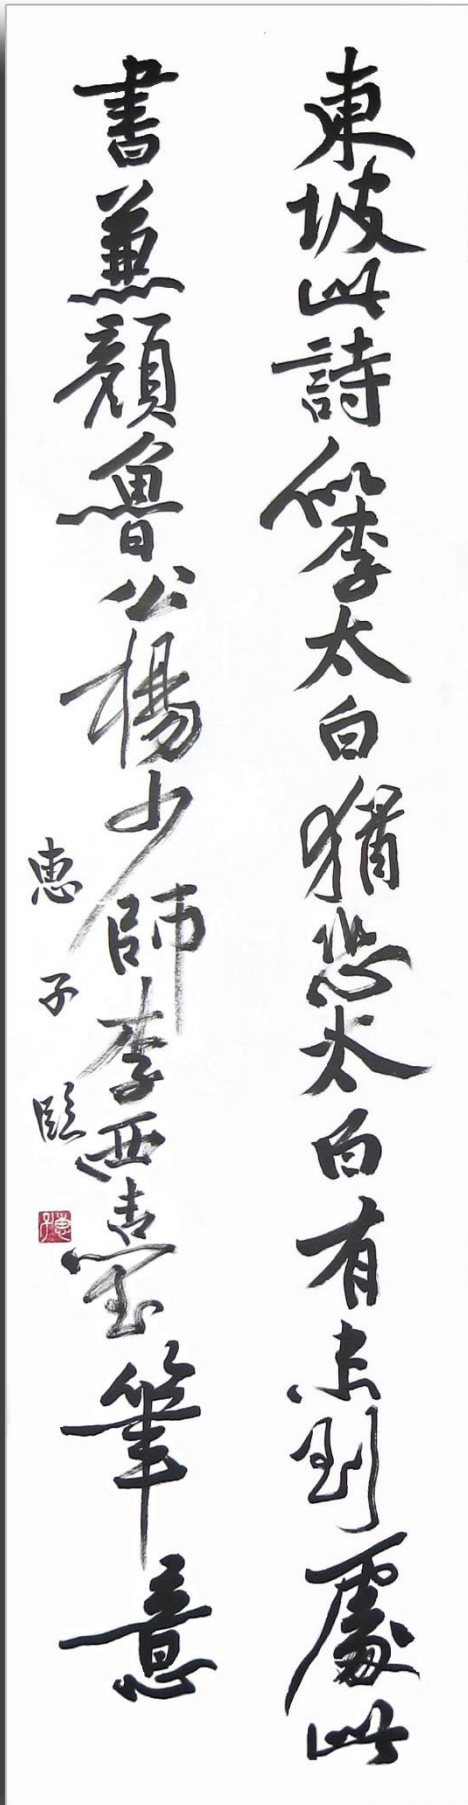 東坡此詩似李太白猶恐太白有未到處此
書兼顏魯公楊少師李西臺筆意
惠子臨
惠子